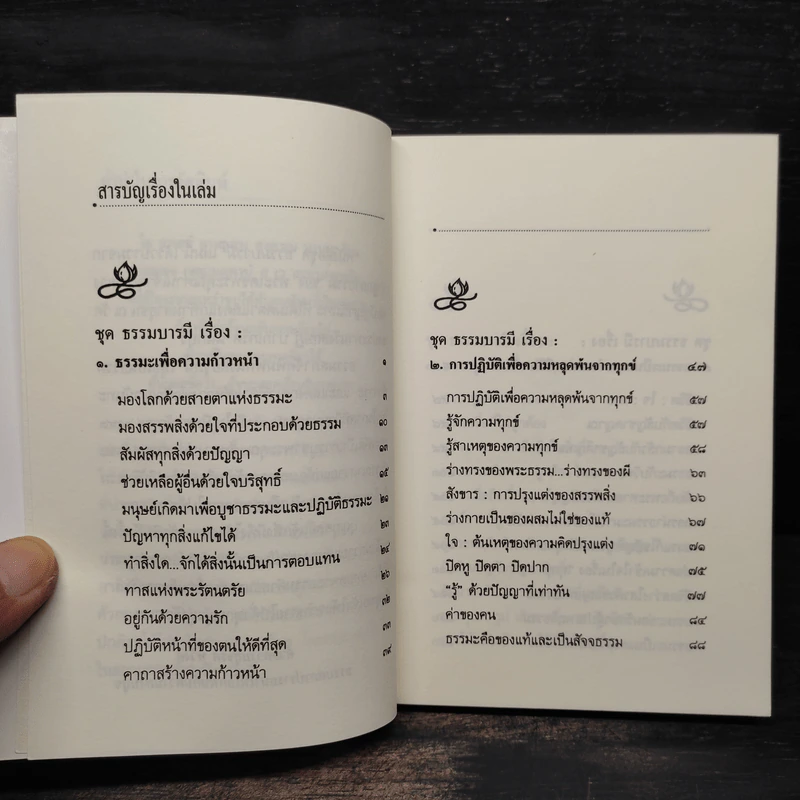 สารบัญเรื่องในเล่ม
ชุด ธรรมบารมี เรื่อง :
๑. ธรรมะเพื่อความก้าวหน้า ๑
มองโลกด้วยสายตาแห่งธรรมะ ๓
มองสรรพสิ่งด้วยใจที่ประกอบด้วยธรรม ๑๐
สัมผัสทุกสิ่งด้วยปัญญา ๑๓
ช่วยเหลือผู้อื่นด้วยใจบริสุทธิ์ ๑๕
มนุษย์เกิดมาเพื่อบูชาธรรมะและปฏิบัติธรรมะ ๒๑
ปัญหาทุกสิ่งแก้ไขได้ ๒๓
ทำสิ่งใด...จักได้สิ่งนั้นเป็นการตอบแทน ๒๔
ทาสแห่งพระรัตนตรัย ๒๖
อยู่กันด้วยความรัก ๓๒
ปฏิบัติหน้าที่ของตนให้ดีที่สุด ๓๓
คาถาสร้างความก้าวหน้า ๓๙
ชุด ธรรมบารมี เรื่อง :
๒. การปฏิบัติเพื่อความหลุดพ้นจากทุกข์ ๔๗
การปฏิบัติเพื่อความหลุดพ้นจากทุกข์ ๕๗
รู้จักความทุกข์ ๕๗
รู้สาเหตุของความทุกข์ ๕๘
ร่างทรงของพระธรรม...ร่างทรงของผี ๖๓
สังขาร : การปรุงแต่งของสรรพสิ่ง ๖๖
ร่างกายเป็นของผสมไม่ใช่ของแท้ ๖๗
ใจ : ต้นเหตุของความคิดปรุงแต่ง ๗๑
ปิดหู ปิดตา ปิดปาก ๗๕
"รู้" ด้วยปัญญาที่เท่าทัน ๗๗
ค่าของคน ๘๔
ธรรมะคือของแท้และเป็นสัจจธรรม ๘๘